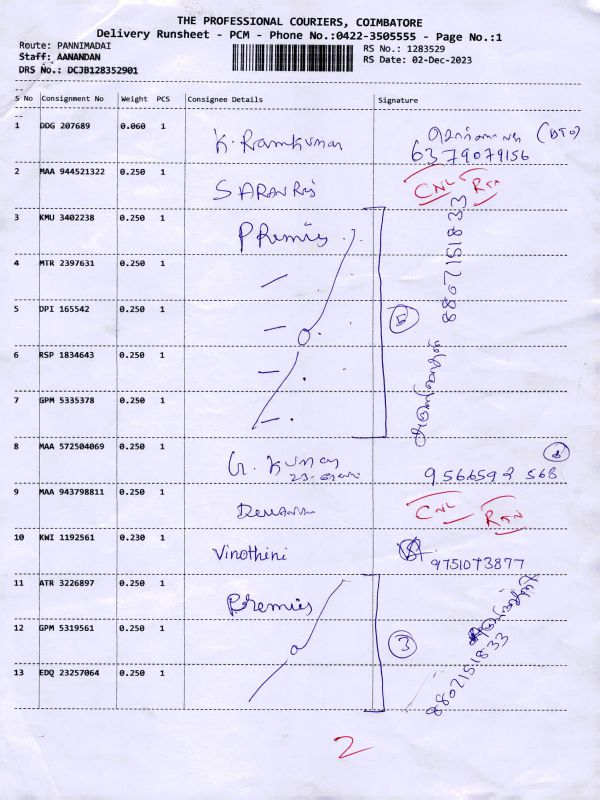 THE PROFESSIONAL COURIERS, COIMBATORE
Delivery Runsheet - PCM - Phone No.:0422-3505555 - Page No.:1
Route: PANNIMADAI
RS No.: 1283529
Staff: AANANDAN
RS Date: 02-Dec-2023
DRS No.: DCJB128352901
S No Consignment No Weight PCS Consignee Details Signature
1 DDG 207689 0.060 1 K. Ramkumar (DTO)
6379079156
2 MAA 944521322 0.250 1 SARAN Raj CNL RTN
3 KMU 3402238 0.250 1 PRemies
8802151833
4 MTR 2397631 0.250 1
5 DPI 165542 0.250 1 5
6 RSP 1834643 0.250 1
7 GPM 5335378 0.250 1
8 MAA 572504069 0.250 1 G. Kumar
9566592568
9 MAA 943798811 0.250 1 CNL RTN
10 KWI 1192561 0.230 1 Vinothini 9751073877
11 ATR 3226897 0.250 1 Premies
12 GPM 5319561 0.250 1 3
8802151833
13 EDQ 23257064 0.250 1
2